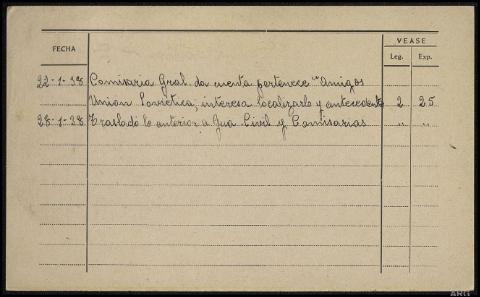 FECHA
VEASE
Leg. Exp.
22-1-38 Comisaria Gral. da cuenta pertenece "Amigos
Union Sovietica, interesa localizarlo y antecedentes 2 25
28-1-38 Traslado lo anterior a Gua Civil y Comisarias " "
ARG